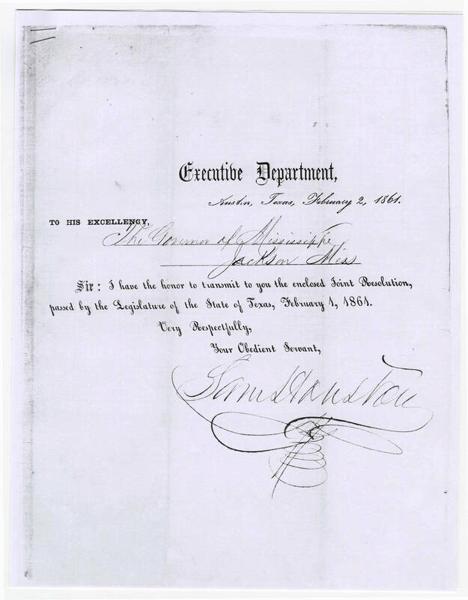 Executive Department,
Austin, Texas, February 2, 1861.
TO HIS EXCELLENCY,
The Governor of Mississippi
Jackson Miss
Sir: I have the honor to transmit to you the enclosed Joint Resolution,
passed by the Legislature of the State of Texas, February 1, 1861.
Very Respectfully,
Your Obedient Servant,
Sam Houston